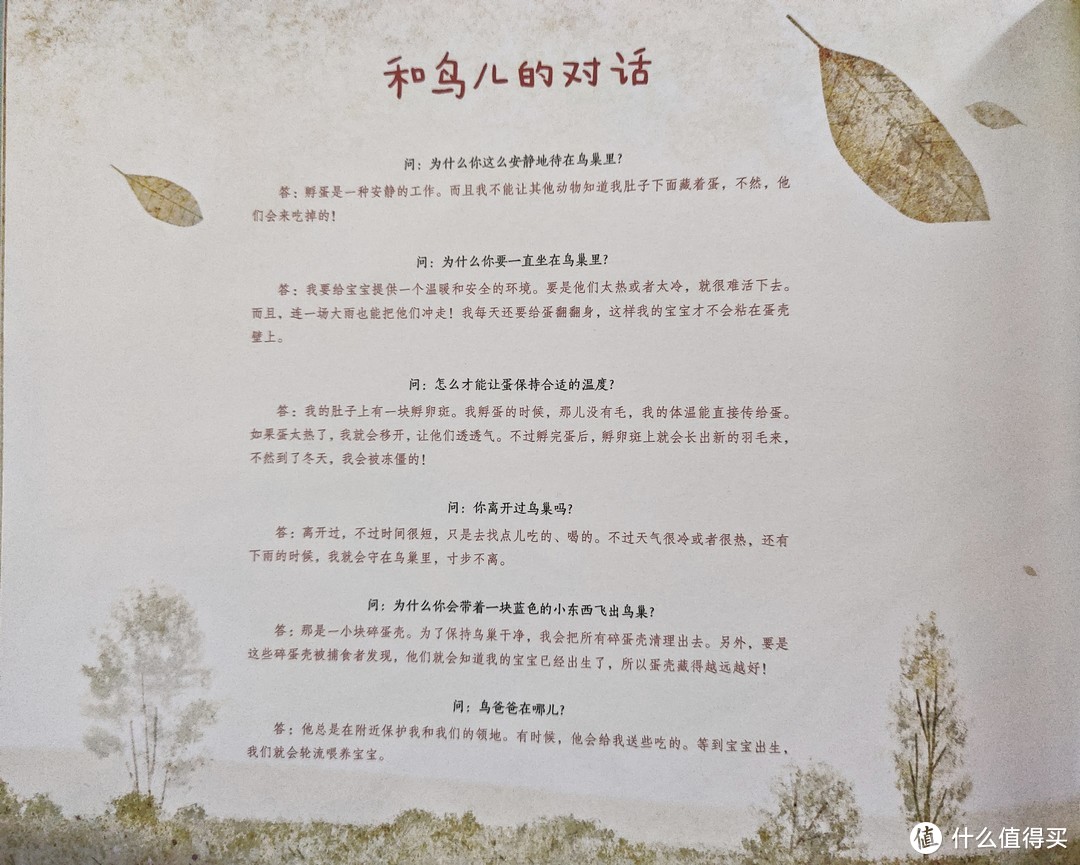 和鸟儿的对话
问：为什么你这么安静地待在鸟巢里？
答：孵蛋是一种安静的工作。而且我不能让其他动物知道我肚子下面藏着蛋，不然，他
们会来吃掉的！
问：为什么你要一直坐在鸟巢里？
答：我要给宝宝提供一个温暖和安全的环境。要是他们太热或者太冷，就很难活下去。
而且，连一场大雨也能把他们冲走！我每天还要给蛋翻翻身，这样我的宝宝才不会粘在蛋壳
壁上。
问：怎么才能让蛋保持合适的温度？
答：我的肚子上有一块孵卵斑。我孵蛋的时候，那儿没有毛，我的体温能直接传给蛋。
如果蛋太热了，我就会移开，让他们透透气。不过孵完蛋后，孵卵斑上就会长出新的羽毛来，
不然到了冬天，我会被冻僵的！
问：你离开过鸟巢吗？
答：离开过，不过时间很短，只是去找点儿吃的、喝的。不过天气很冷或者很热，还有
下雨的时候，我就会守在鸟巢里，寸步不离。
问：为什么你会带着一块蓝色的小东西飞出鸟巢？
答：那是一小块碎蛋壳。为了保持鸟巢干净，我会把所有碎蛋壳清理出去。另外，要是
这些碎蛋壳被捕食者发现，他们就会知道我的宝宝已经出生了，所以蛋壳藏得越远越好！
问：鸟爸爸在哪儿？
答：他总是在附近保护我和我们的领地。有时候，他会给我送些吃的。等到宝宝出生，
我们就会轮流喂养宝宝。
值 什么值得买